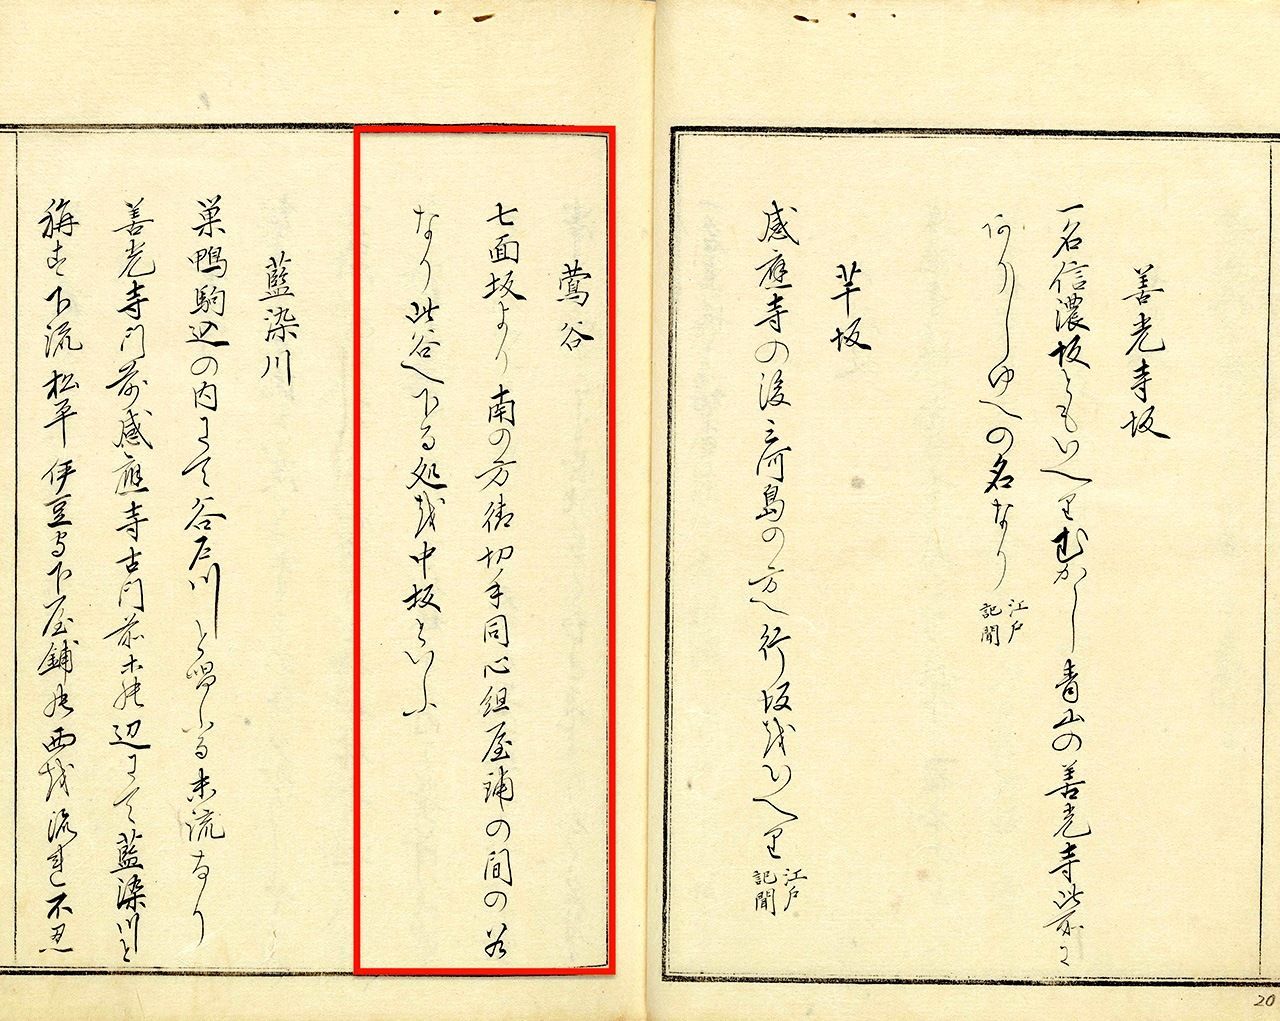 善光寺坂
一名信濃坂ともいへりむかし青山の善光寺此所に
ありしゆへの名なり
江戸
記聞
芋坂
感應寺の後三河島の方へ行坂をいへり
江戸
記聞
鶯谷
七面坂より南の方御切手同心組屋鋪の間の谷
なり此谷へ下る処を中坂といふ
藍染川
巣鴨駒込の内にて谷戸川と唱ふる末流なり
善光寺門前感應寺古門前末辺にて藍染川と
称す下流松平伊豆守下屋鋪西を流れ不忍
20